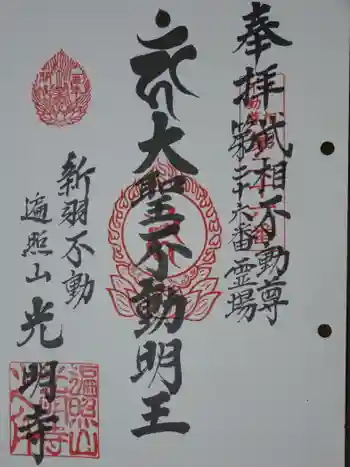 奉拝
武相不動尊
第二十六番霊場
大聖不動明王
新羽不動
遍照山
光明寺